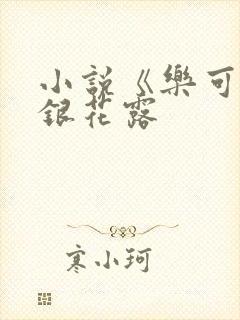 小説《樂可
銀花露
寒小珂